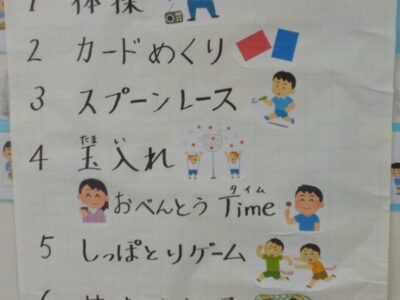 1 体操
2 カードめくり
3 スプーンレース
4 玉入れ
たま い
おべんとう Time
タイム
5 しっぽとりゲーム
6